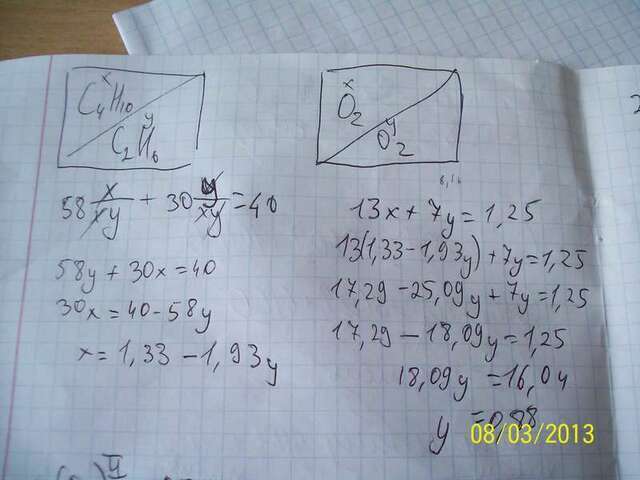 x
C₄H₁₀
y
C₂H₆
x
O₂
y
O₂
58 x/xy + 30 y/xy = 40
58y + 30x = 40
30x = 40 - 58y
x = 1,33 - 1,93y
13x + 7y = 1,25
13(1,33 - 1,93y) + 7y = 1,25
17,29 - 25,09y + 7y = 1,25
17,29 - 18,09y = 1,25
18,09y = 16,04
y = 0,88
08/03/2013